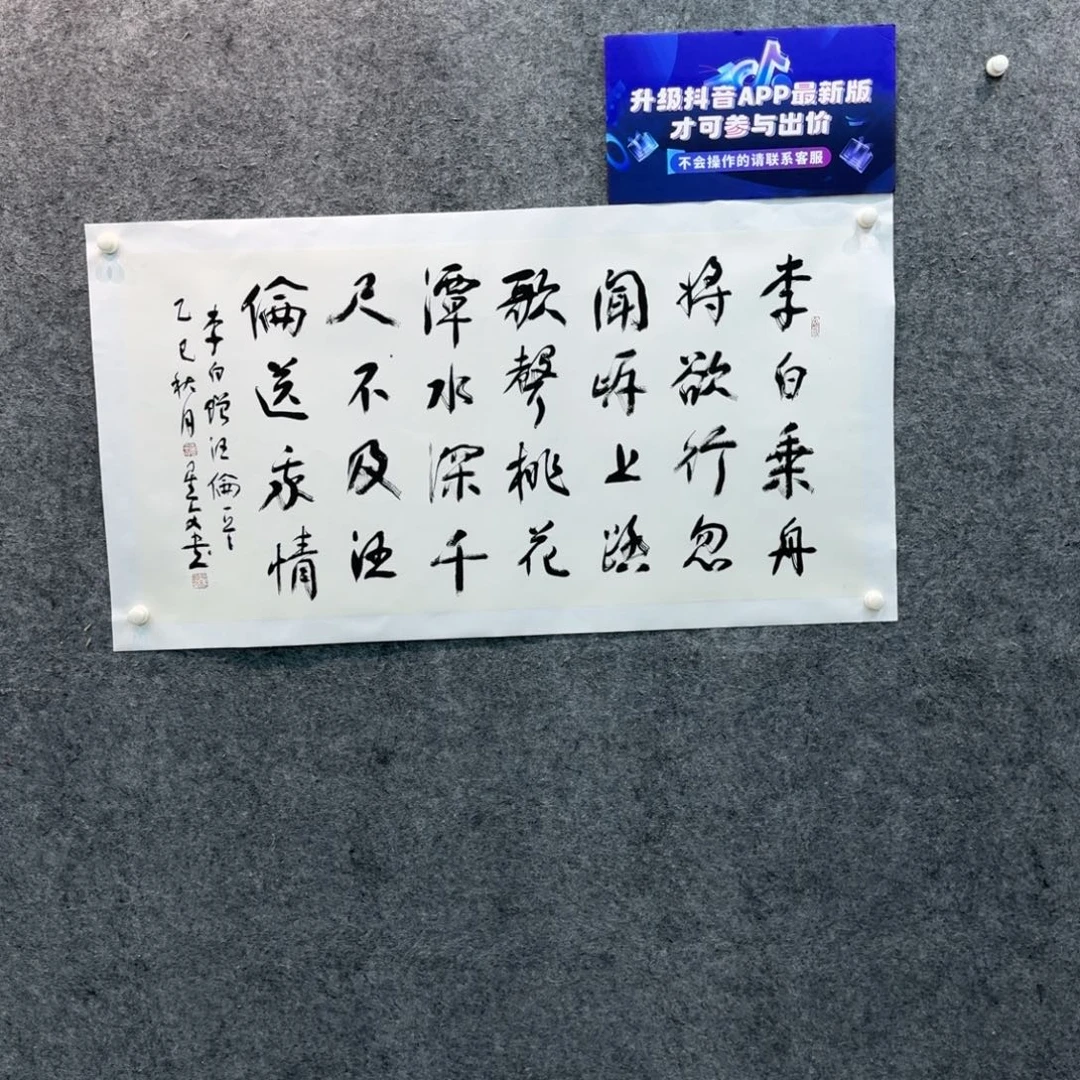 升级抖音APP最新版
才可参与出价
不会操作的请联系客服
李白乘舟
将欲行忽
闻岍上踏
歌聲桃花
潭水深千
尺不及汪
倫送我情
李白赠汪倫一首
乙巳秋月